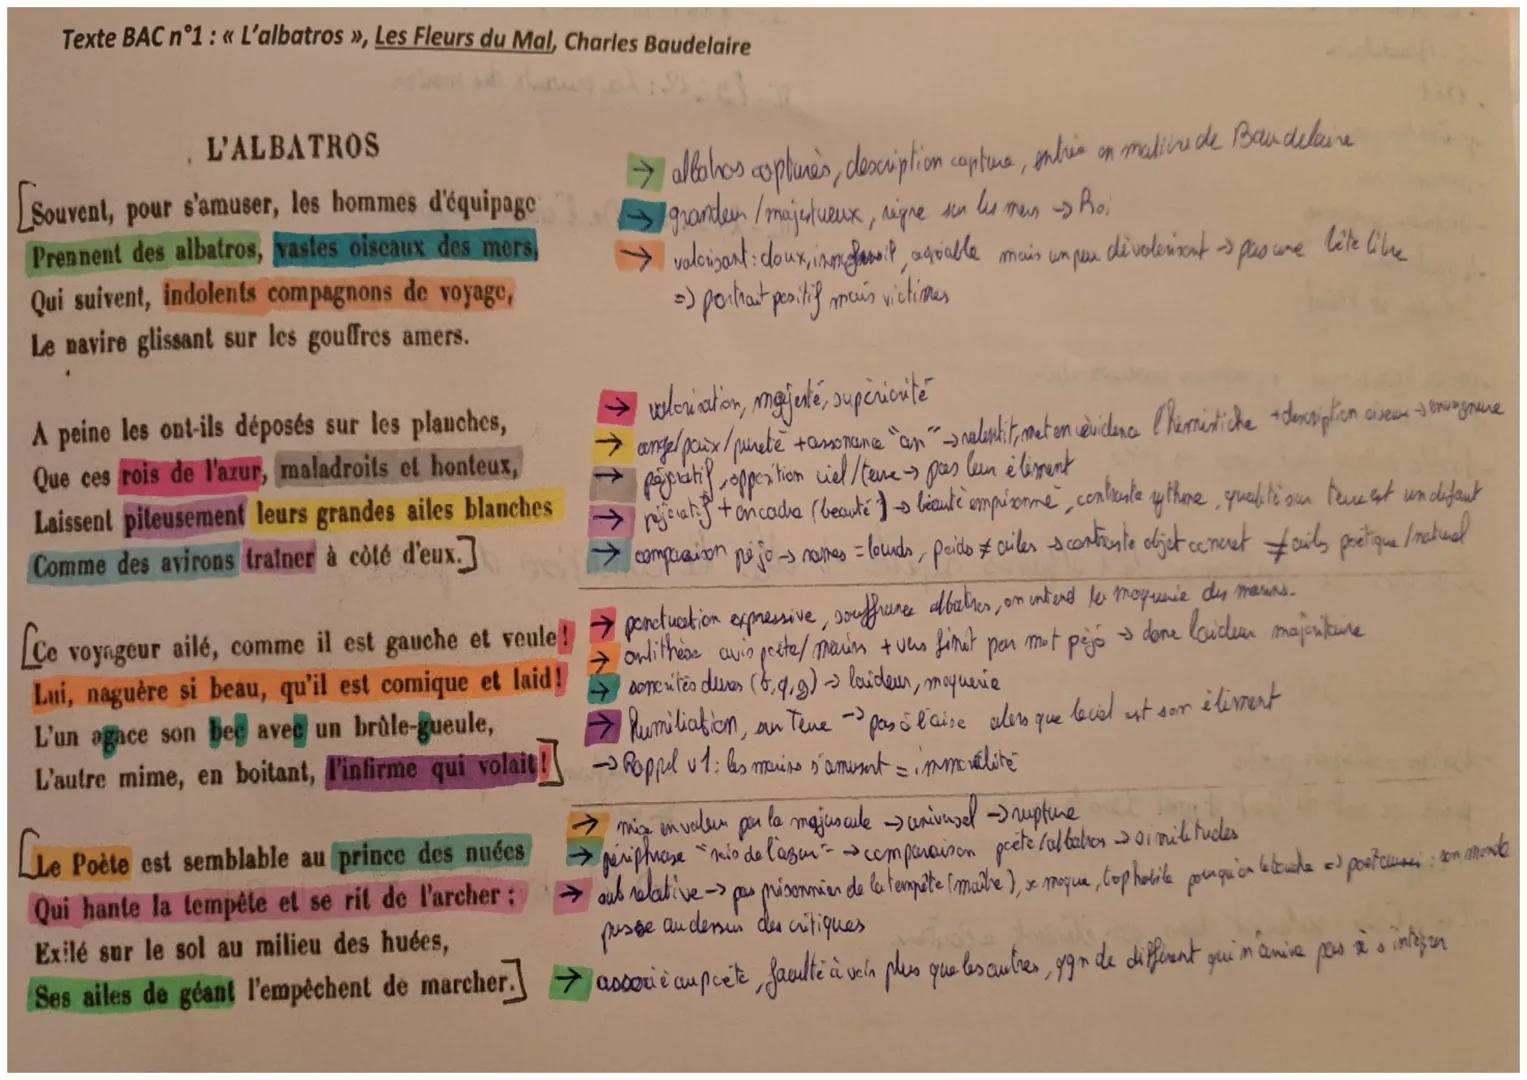 Texte BAC n°1 : « L'albatros », Les Fleurs du Mal, Charles Baudelaire
L'ALBATROS
Souvent, pour s'amuser, les hommes d'équipage
Prennent des albatros, vastes oiseaux des mers,
Qui suivent, indolents compagnons de voyage,
Le navire glissant sur les gouffres amers.
→ albatros capturés, description capture, entrée en matière de Baudelaire
→ grandeur / majestueux, règne sur les mers → Roi
→ valorisant : doux, inoffensif, agréable mais un peu dévalorisant → pas une bête libre
=> portrait positif mais victimes
A peine les ont-ils déposés sur les planches,
Que ces rois de l'azur, maladroits et honteux,
Laissent piteusement leurs grandes ailes blanches
Comme des avirons traîner à côté d'eux.]
→ valorisation, majesté, supériorité
→ ange/paix/pureté + assonance "an" → ralentit, met en évidence l'hémistiche + description oiseau → envergure
→ péjoratif, opposition ciel/terre → pas leur élément
→ péjoratif + encadre (beauté) → beauté emprisonné, contraste rythme, qualité sur terre est un défaut
→ comparaison péjo → rames = lourds, poids ≠ ailes → contraste objet concret ≠ ailes poétique/naturel
[Ce voyageur ailé, comme il est gauche et veule!
Lui, naguère si beau, qu'il est comique et laid!
L'un agace son bec avec un brûle-gueule,
L'autre mime, en boitant, l'infirme qui volait!]
→ ponctuation expressive, souffrance albatros, on entend la moquerie des marins.
→ antithèse avis poète/marins + vers finit par mot péjo → donc laideur majoritaire
→ sonorités dures (b, q, g) → laideur, moquerie
→ humiliation, sur terre → pas à l'aise alors que le ciel est son élément
→ Rappel v1 : les marins s'amusent = immoralité
[Le Poète est semblable au prince des nuées
Qui hante la tempête et se rit de l'archer ;
Exilé sur le sol au milieu des huées,
Ses ailes de géant l'empêchent de marcher.]
→ mise en valeur par la majuscule → universel → rupture
→ périphrase "rois de l'azur" → comparaison poète/albatros → similitudes
→ sub relative → pas prisonnier de la tempête (maître), se moque, qu'on le touche => poète aussi : son monde
passe au dessus des critiques
→ associé au poète, faculté à voir plus que les autres, qqn de différent qui n'arrive pas à s'intégrer